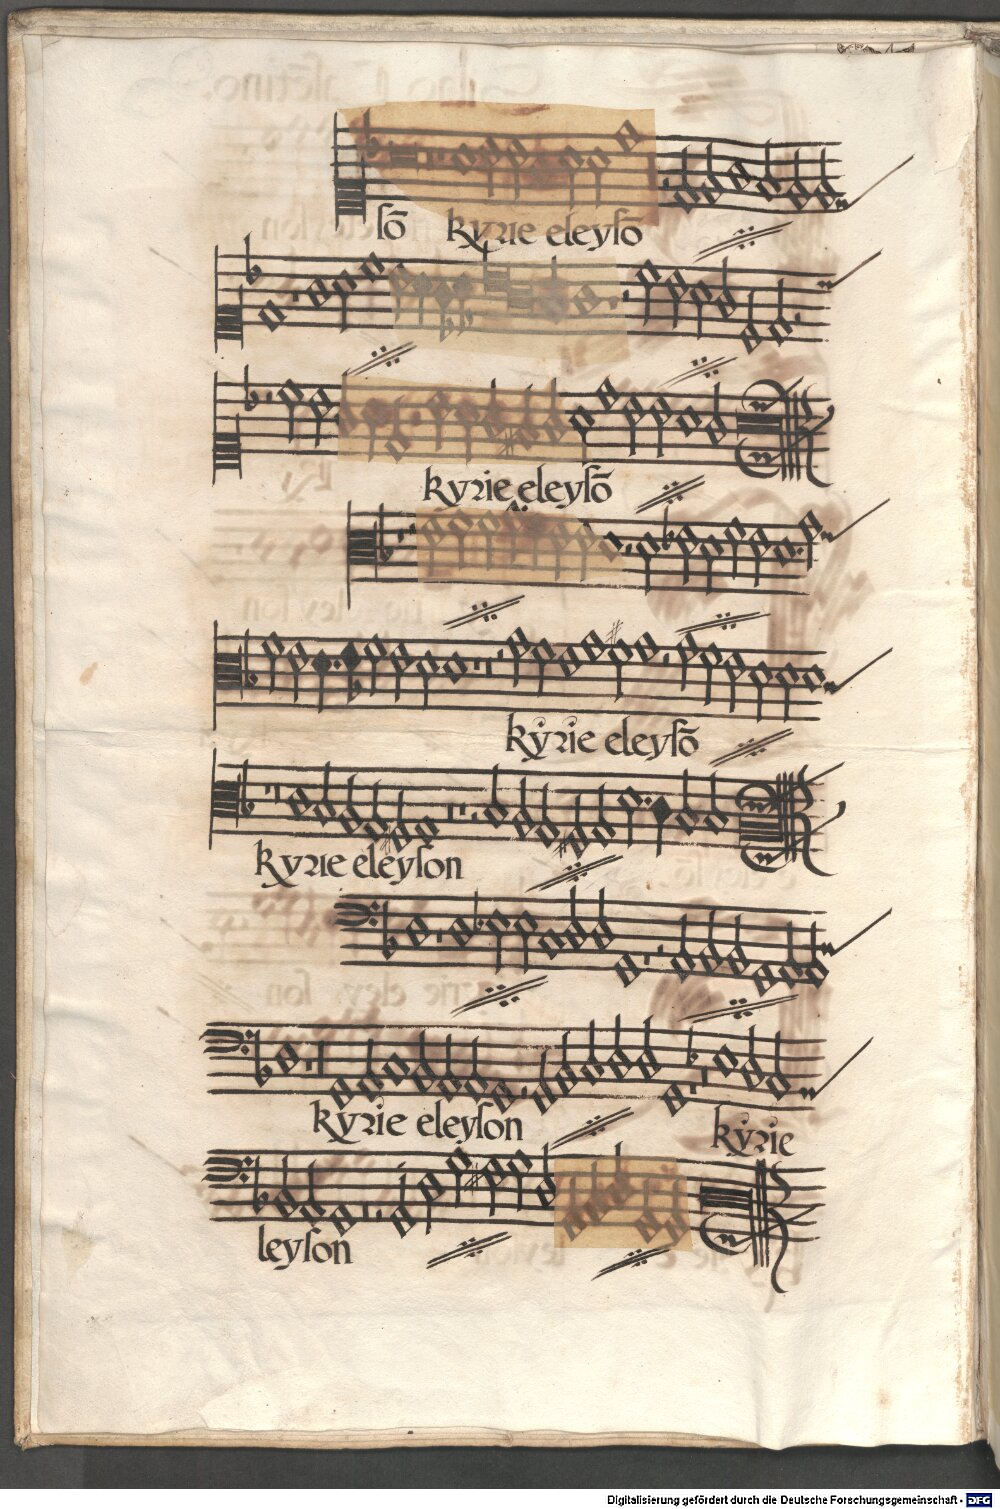 ſõ kyrie eleyſõ
kyrie eleyſõ
kyrie eleyſõ
kyrie eleyſon
kyrie eleyſon kyrie
leyſon
Digitalisierung gefördert durch die Deutsche Forschungsgemeinschaft - DFG